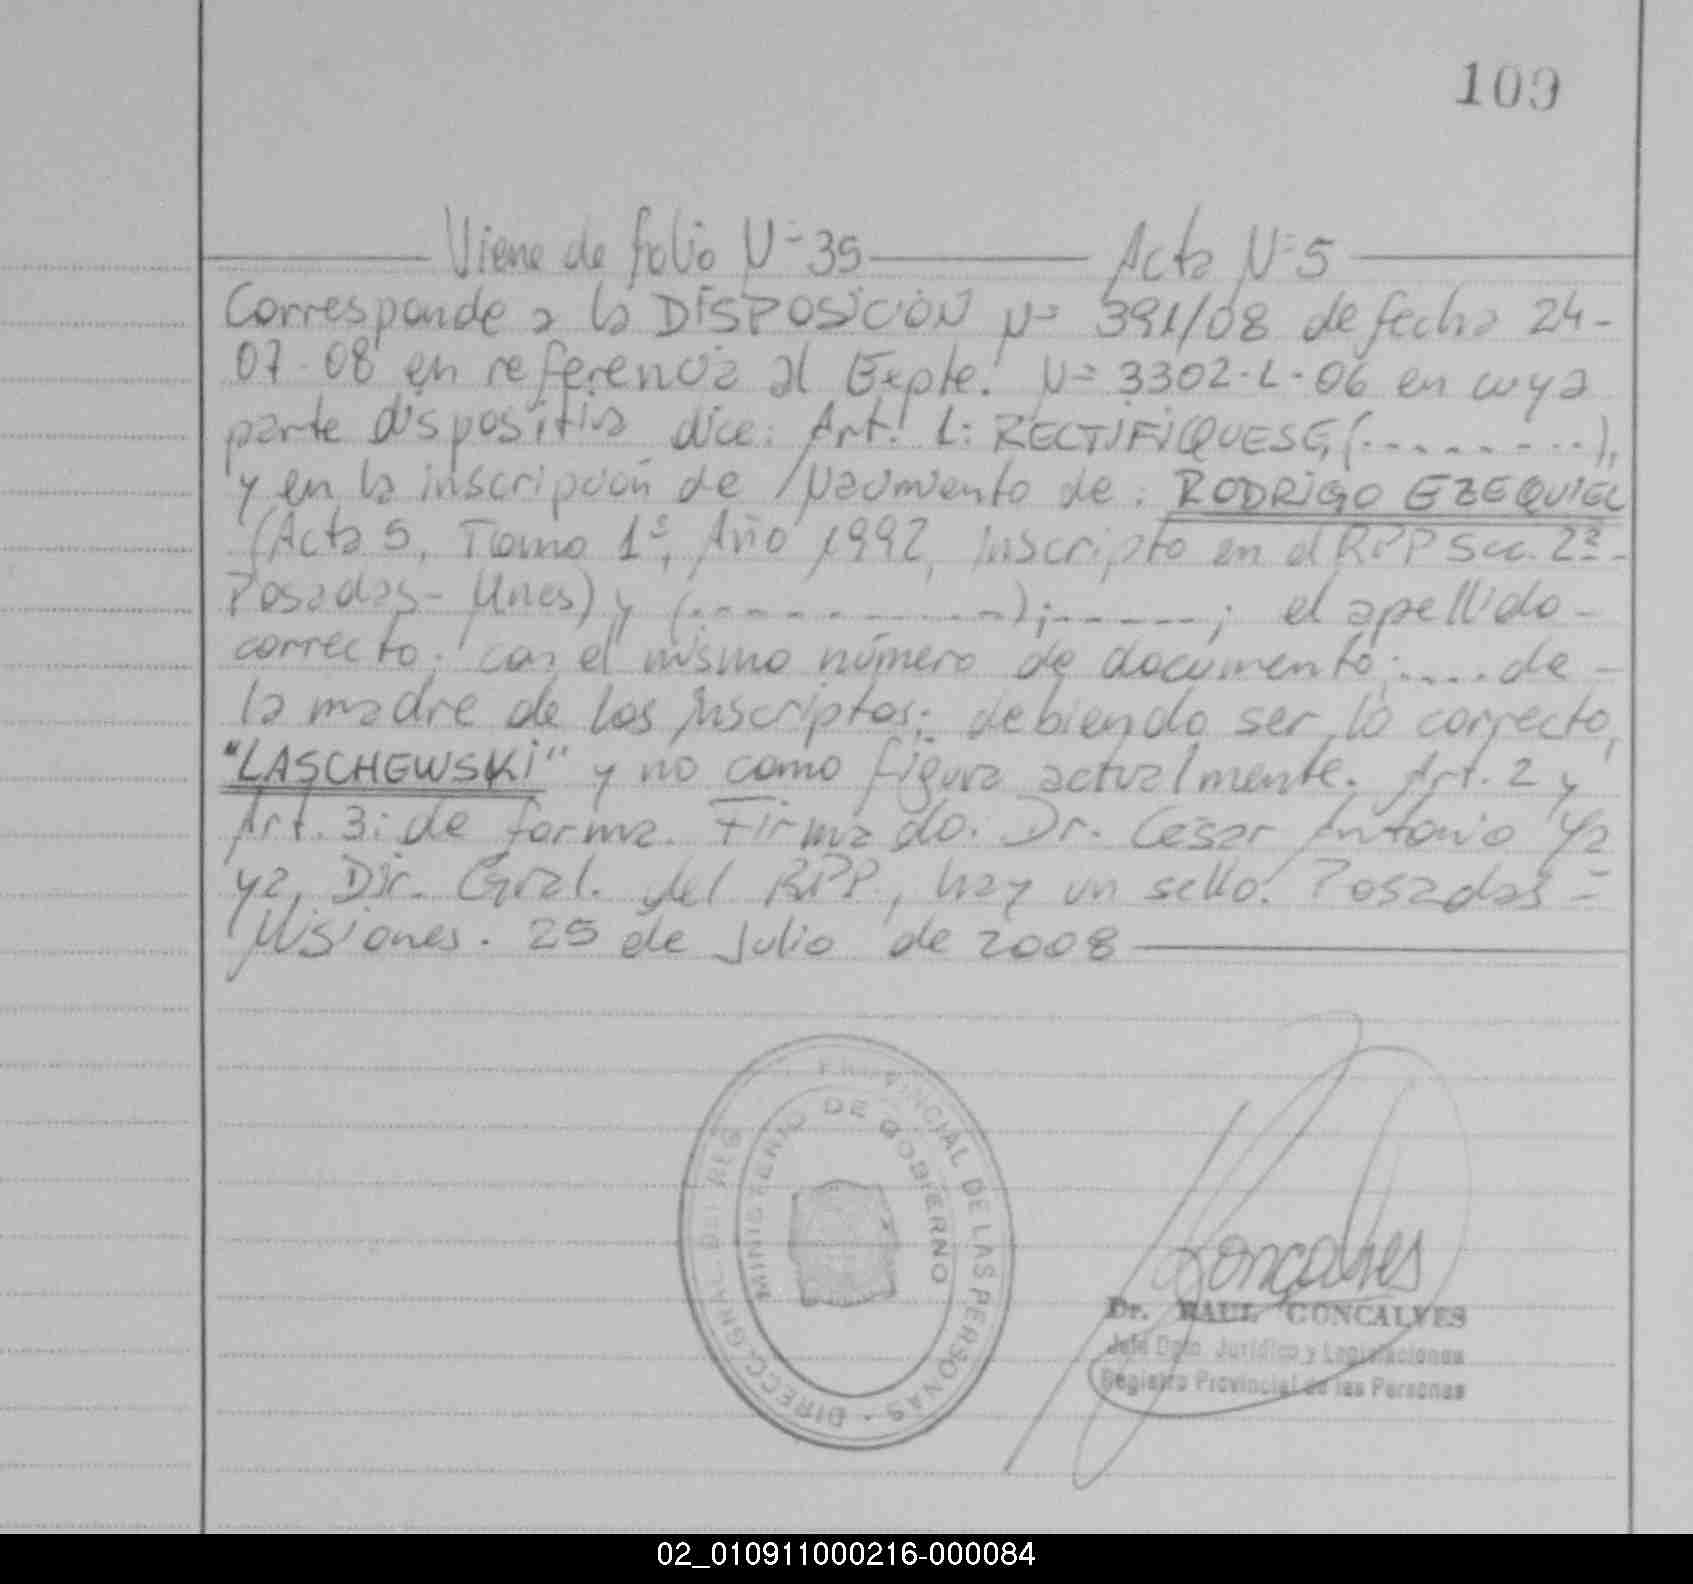 109
Viene de folio N= 35 Acta N=5
Corresponde a la DISPOSICION N= 391/08 de fecha 24-
07-08 en referencia al Expte. N= 3302-L-06 en cuya
parte dispositiva dice: Art. 1: RECTIFIQUESE, (.........),
y en la inscripción de Nacimiento de: RODRIGO EZEQUIEL
(Acta 5, Tomo 1º, Año 1992, Inscripto en el RPP Sec. 2ª-
Posadas- Mnes) y (............);......; el apellido-
correcto; con el mismo número de documento;.... de-
la madre de los inscriptos; debiendo ser lo correcto,
"LASCHEWSKI" y no como figura actualmente. Art. 2 y
Art. 3: de forma. Firmado. Dr. César Antonio Ya
ya, Dir. Gral. del RPP, hay un sello. Posadas=
Misiones. 25 de Julio de 2008
DIRECC. GRAL. DEL REG. PROVINCIAL DE LAS PERSONAS
MINISTERIO DE GOBIERNO
Goncalves
Dr. RAUL GONCALVES
Jefe Dpto. Jurídico y Legislaciones
Registro Provincial de las Personas
02_010911000216-000084